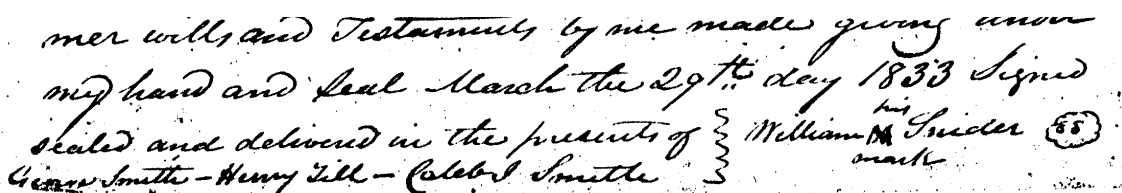 mer wills and Testaments by me made giving under
my hand and Seal March the 29th day 1833 Signed
sealed and deliverd in the presents of William his Snider SS
mark
George Smith - Henry Till - Caleb J Smith